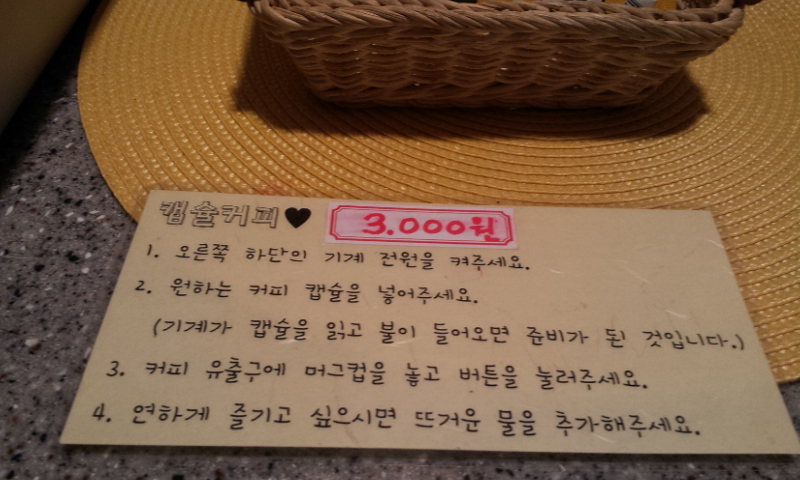 캡슐커피♥ 3.000원
1. 오른쪽 하단의 기계 전원을 켜주세요.
2. 원하는 커피 캡슐을 넣어주세요.
(기계가 캡슐을 읽고 불이 들어오면 준비가 된 것입니다.)
3. 커피 유출구에 머그컵을 놓고 버튼을 눌러주세요.
4. 연하게 즐기고 싶으시면 뜨거운 물을 추가해주세요.